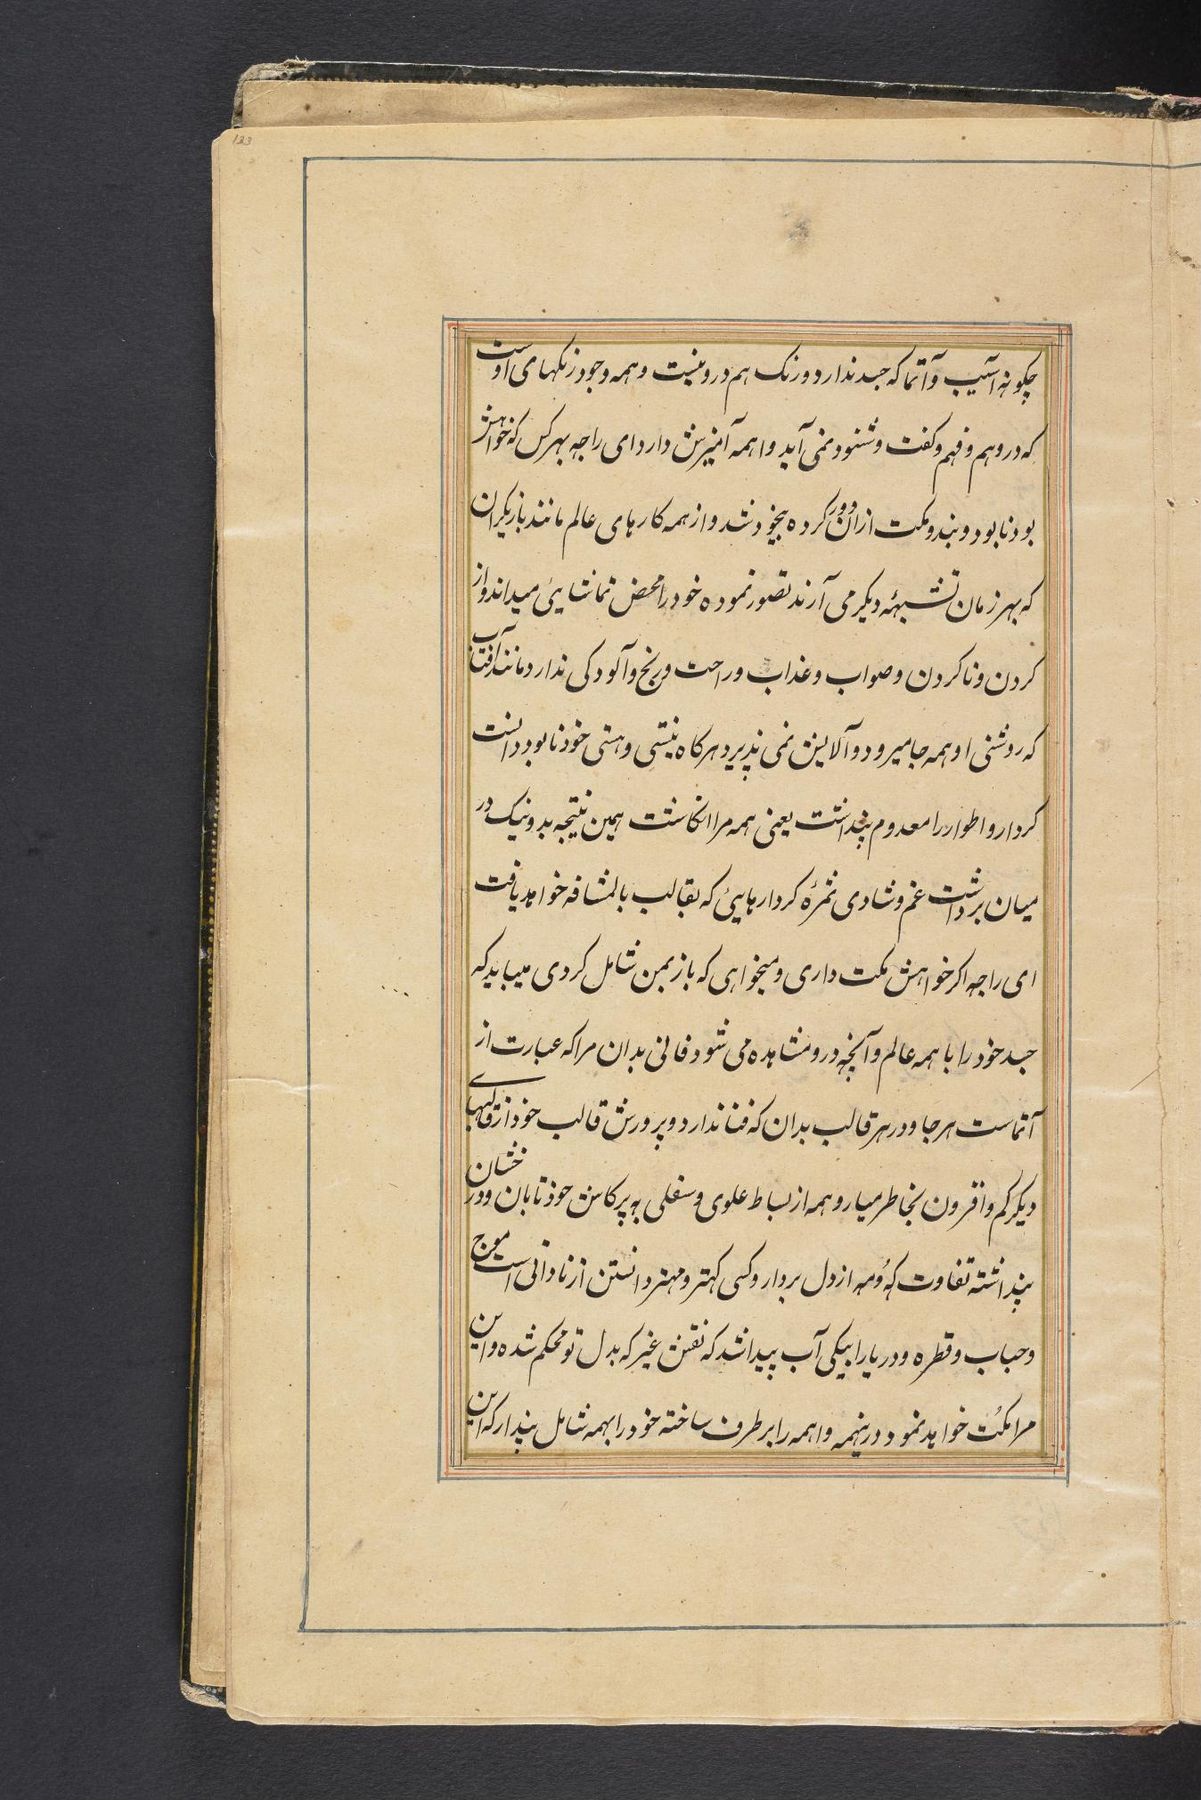 123
چکونه آسیب و آتما که جسد ندارد و رنک هم درو نیست و همه وجود رنکهای اوست
که در وهم و فهم و کفت و شنود نمی آید و با همه آمیزش دارد ای راجه بهر کس که خواهش
بود نابود و بند و مکت ازان دور کرده بیخود نشد و از همه کارهای عالم مانند بازیکران
که بهر زمان تشبهٔ دیکر می آرند تصور نموده خود را محض تماشایی میداند و از
کردن و ناکردن و صواب و عذاب و راحت و رنج و آلودکی ندارد مانند آفتاب
که روشنی او همه جا میرود و آلایش نمی پذیرد هرکاه نیستی و هستی خود نابود دانست
کردار و اطوار را معدوم پنداشت یعنی همه مرا انکاشت همین نتیجه بد و نیک در
میان برداشت غم و شادی ثمرهٔ کردارهایی که بقالب بالمشافه خواهد یافت
ای راجه اکر خواهش مکت داری و میخواهی که باز بمن شامل کردی میباید که
جسد خود را با همه عالم و آنچه درو مشاهده می شود فانی بدان مرا که عبارت از
آتماست هرجا و در هر قالب بدان که فنا ندارد و پرورش قالب خود از قالبهای
دیکر کم و افزون بخاطر میار و همه از بساط علوی و سفلی به پرکاش خود تابان و درخشان
پنداشته تفاوت که و مه از دل بردار و کسی کهتر و مهتر دانستن از نادانی است موج
و حباب و قطره و دریا را بیکی آب پیدا شد که نقش غیر که بدل تو محکم شده و این
مرا مکت خواهد نمود درینهمه واهمه را برطرف ساخته خود را بهمه شامل پندار که این